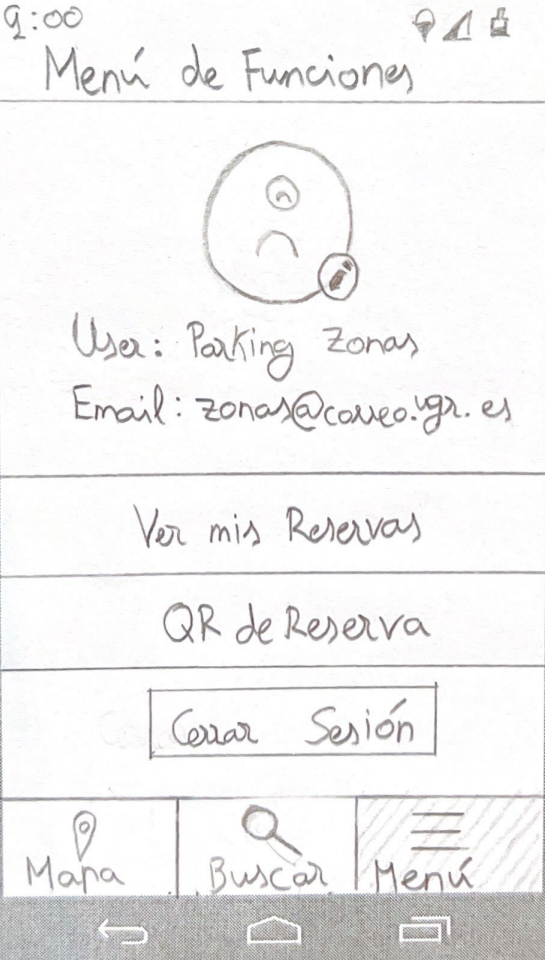 9:00
Menú de Funciones
User: Parking Zonas
Email: zonas@correo.ugr.es
Ver mis Reservas
QR de Reserva
Cerrar Sesión
Mapa
Buscar
Menú